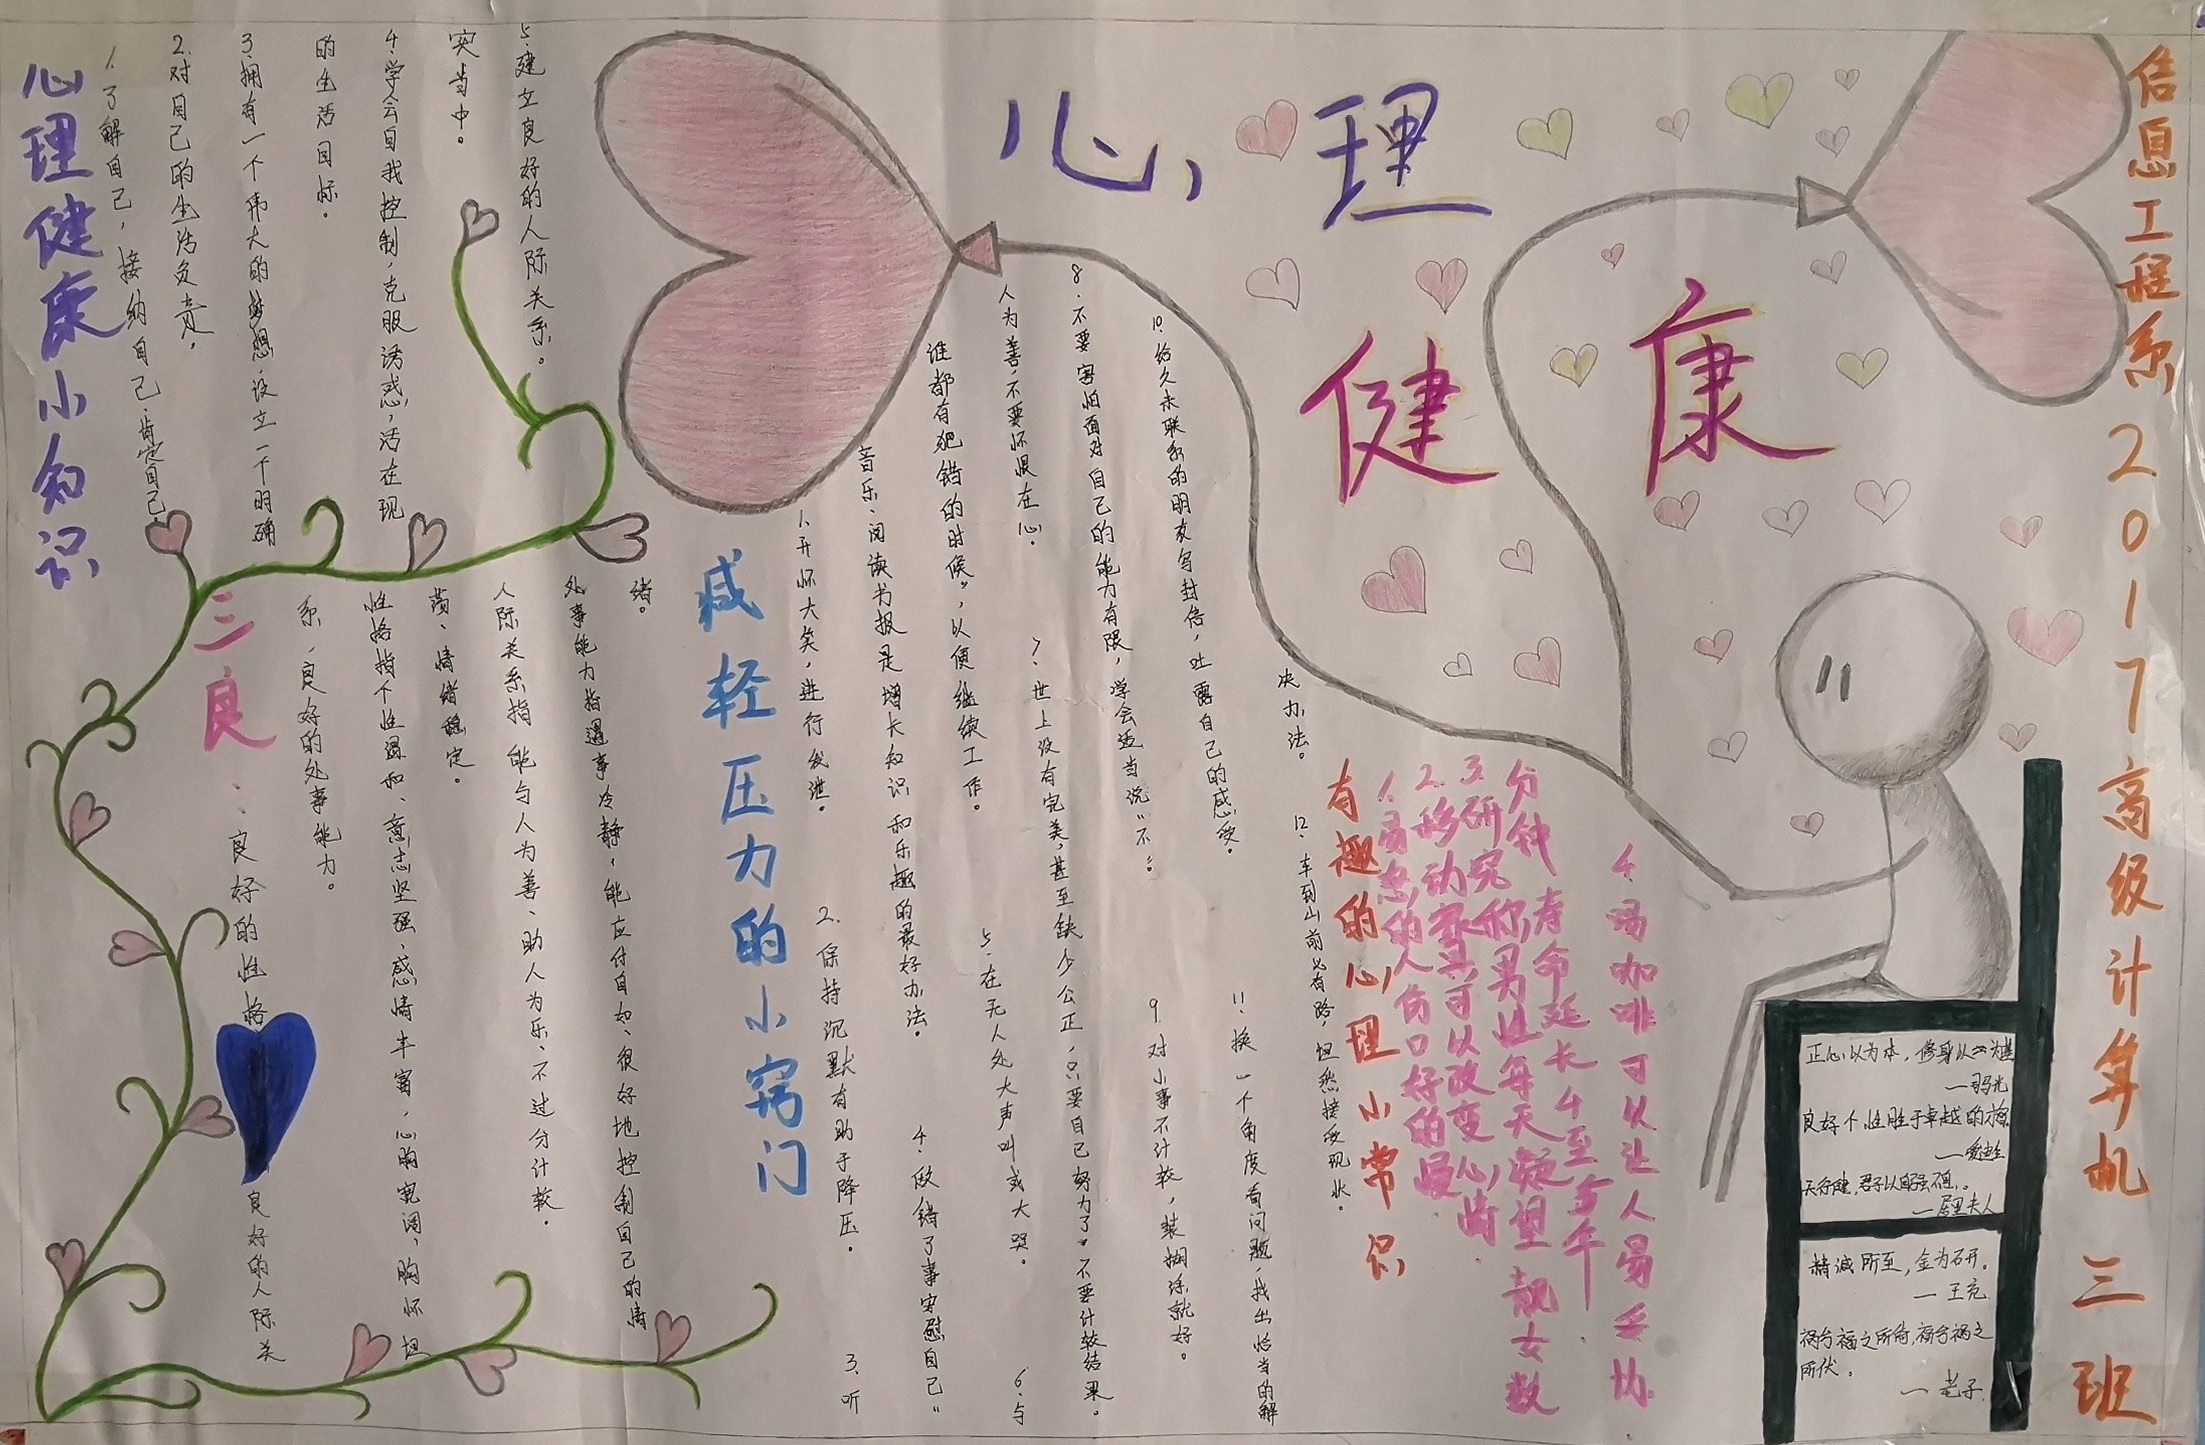 心理健康
信息工程系2017高级计算机三班
心理健康小知识
1.了解自己，接纳自己.肯定自己
2.对自己的生活负责。
3.拥有一个伟大的梦想.设立一个明确
的生活目标.
4.学会自我控制,克服诱惑,活在现
实当中。
5.建立良好的人际关系。
三良：
良好的性格
良好的人际关
系,良好的处事能力。
性格指个性温和、意志坚强、感情丰富,心胸宽阔、胸怀坦
荡、情绪稳定。
人际关系指能与人为善、助人为乐、不过分计较.
处事能力指遇事冷静,能应付自如、很好地控制自己的情
绪。
减轻压力的小窍门
1.开怀大笑,进行发泄。
2.保持沉默有助于降压。
3.听
音乐、阅读书报是增长知识和乐趣的最好办法。
4.做错了事安慰自己"
谁都有犯错的时候",以便继续工作。
5.在无人处大声叫或大哭。
6.与
人为善,不要怀恨在心.
7.世上没有完美,甚至缺少公正,只要自己努力了,不要计较结果。
8.不要害怕面对自己的能力有限,学会适当说"不".
9.对小事不计较,装糊涂就好。
10.给久未联系的朋友写封信,吐露自己的感受。
11.换一个角度看问题,找出恰当的解
决办法。
12.车到山前必有路,坦然接受现状。
有趣的心理小常识
1.易怒的人伤口好的慢
2.移动家具可以改变心情.
3.研究称,男性每天凝望靓女数
分钟寿命延长4至5年
4.喝咖啡可以让人易妥协.
正心以为本，修身以为基
—司马光
良好个性胜于卓越的才智.
—爱迪生
天行健,君子以自强不息.
—居里夫人
精诚所至,金为石开.
—王充
祸兮福之所倚,福兮祸之
所伏.
—老子.